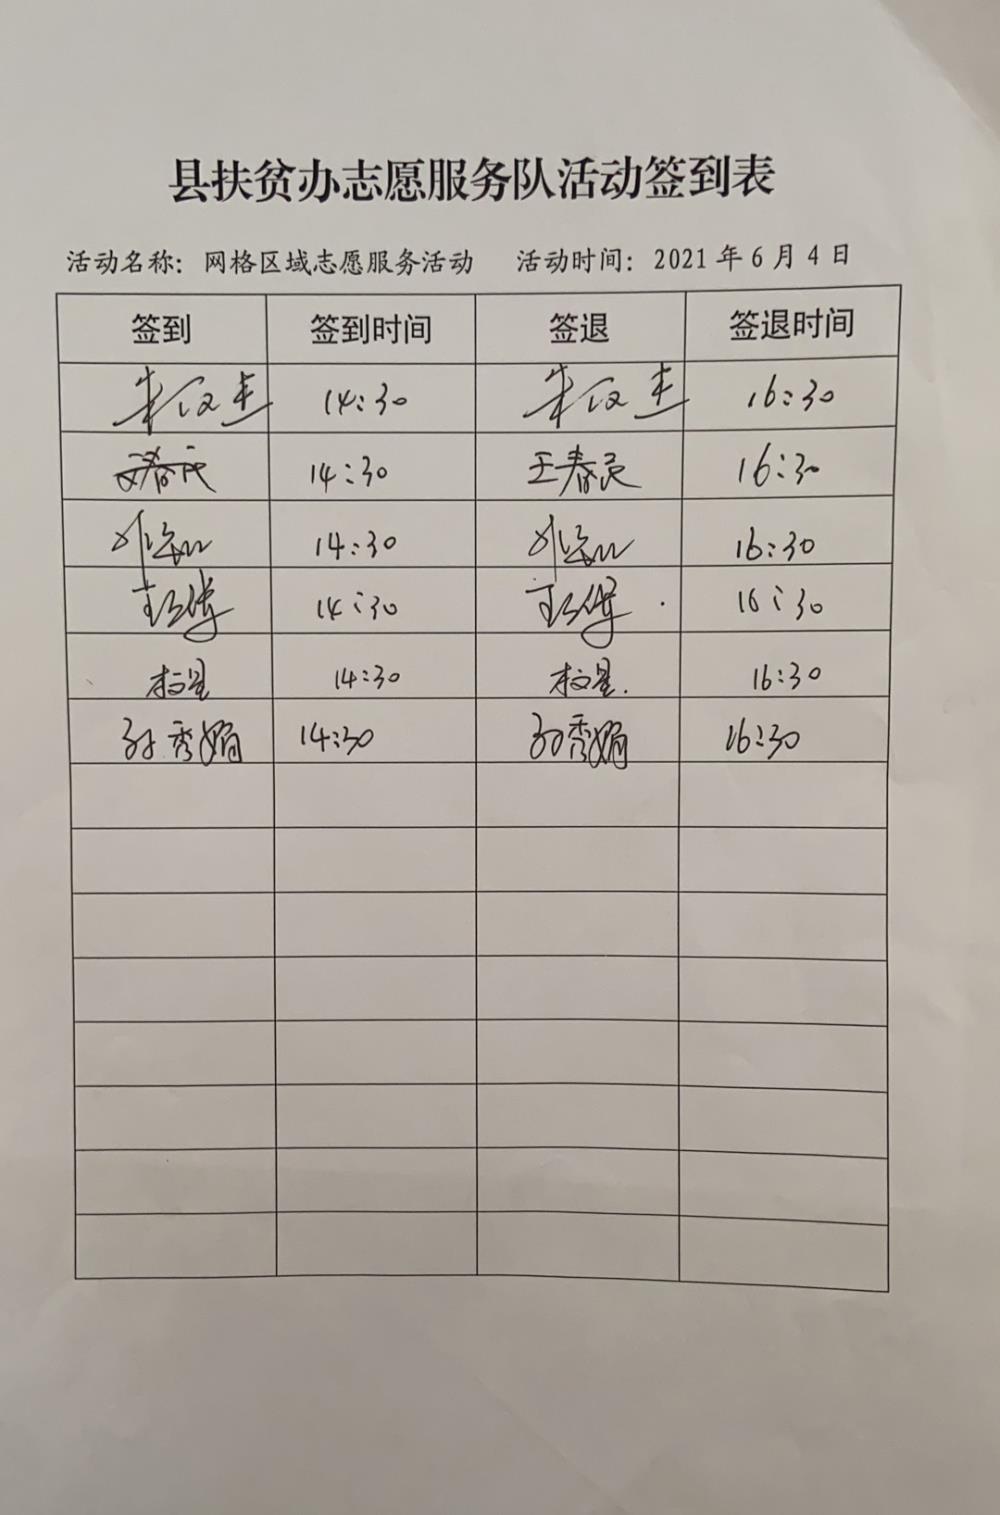 县扶贫办志愿服务队活动签到表
活动名称：网格区域志愿服务活动 活动时间：2021年6月4日
签到 签到时间 签退 签退时间
14:30 16:30
14:30 王春民 16:30
14:30 16:30
14:30 16:30
14:30 16:30
孙秀娟 14:30 孙秀娟 16:30